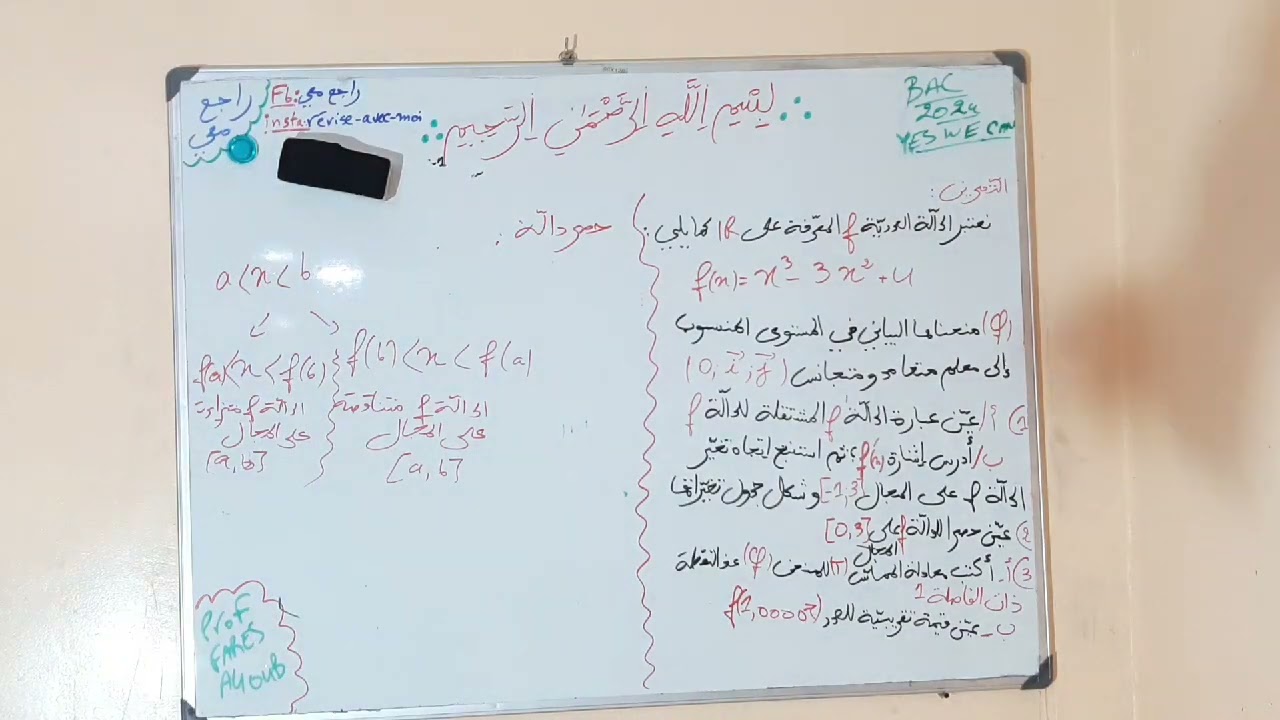 راجع
معي
Fb: راجع معي
insta: révise-avec-moi
بسم الله الرحمن الرحيم
BAC
2024
YES WE CAN
التمرين:
نعتبر الدالة العددية f المعرفة على IR كما يلي:
f(x) = x³ - 3x² + 4
(Cf) منحناها البياني في المستوى المنسوب
إلى معلم متعامد ومتجانس (O; i⃗; j⃗)
1) أ/ عيّن عبارة الدالة f' المشتقة للدالة f
ب/ أدرس إشارة f'(x)؛ ثم استنتج اتجاه تغيّر
الدالة f على المجال [-1,3] وشكل جدول تغيّراتها
2) عيّن حصرا للدالة f على المجال [0,3]
3) أ- أكتب معادلة المماس (T) للمنحنى (Cf) عند النقطة
ذات الفاصلة 1
ب- عيّن قيمة تقريبيّة للعدد
حصر دالّة:
a < x < b
f(a) < x < f(b)
الدالة f متزايدة
على المجال
[a,b]
f(b) < x < f(a)
الدالة f متناقصة
على المجال
[a,b]
Prof
FARES
AYOUB